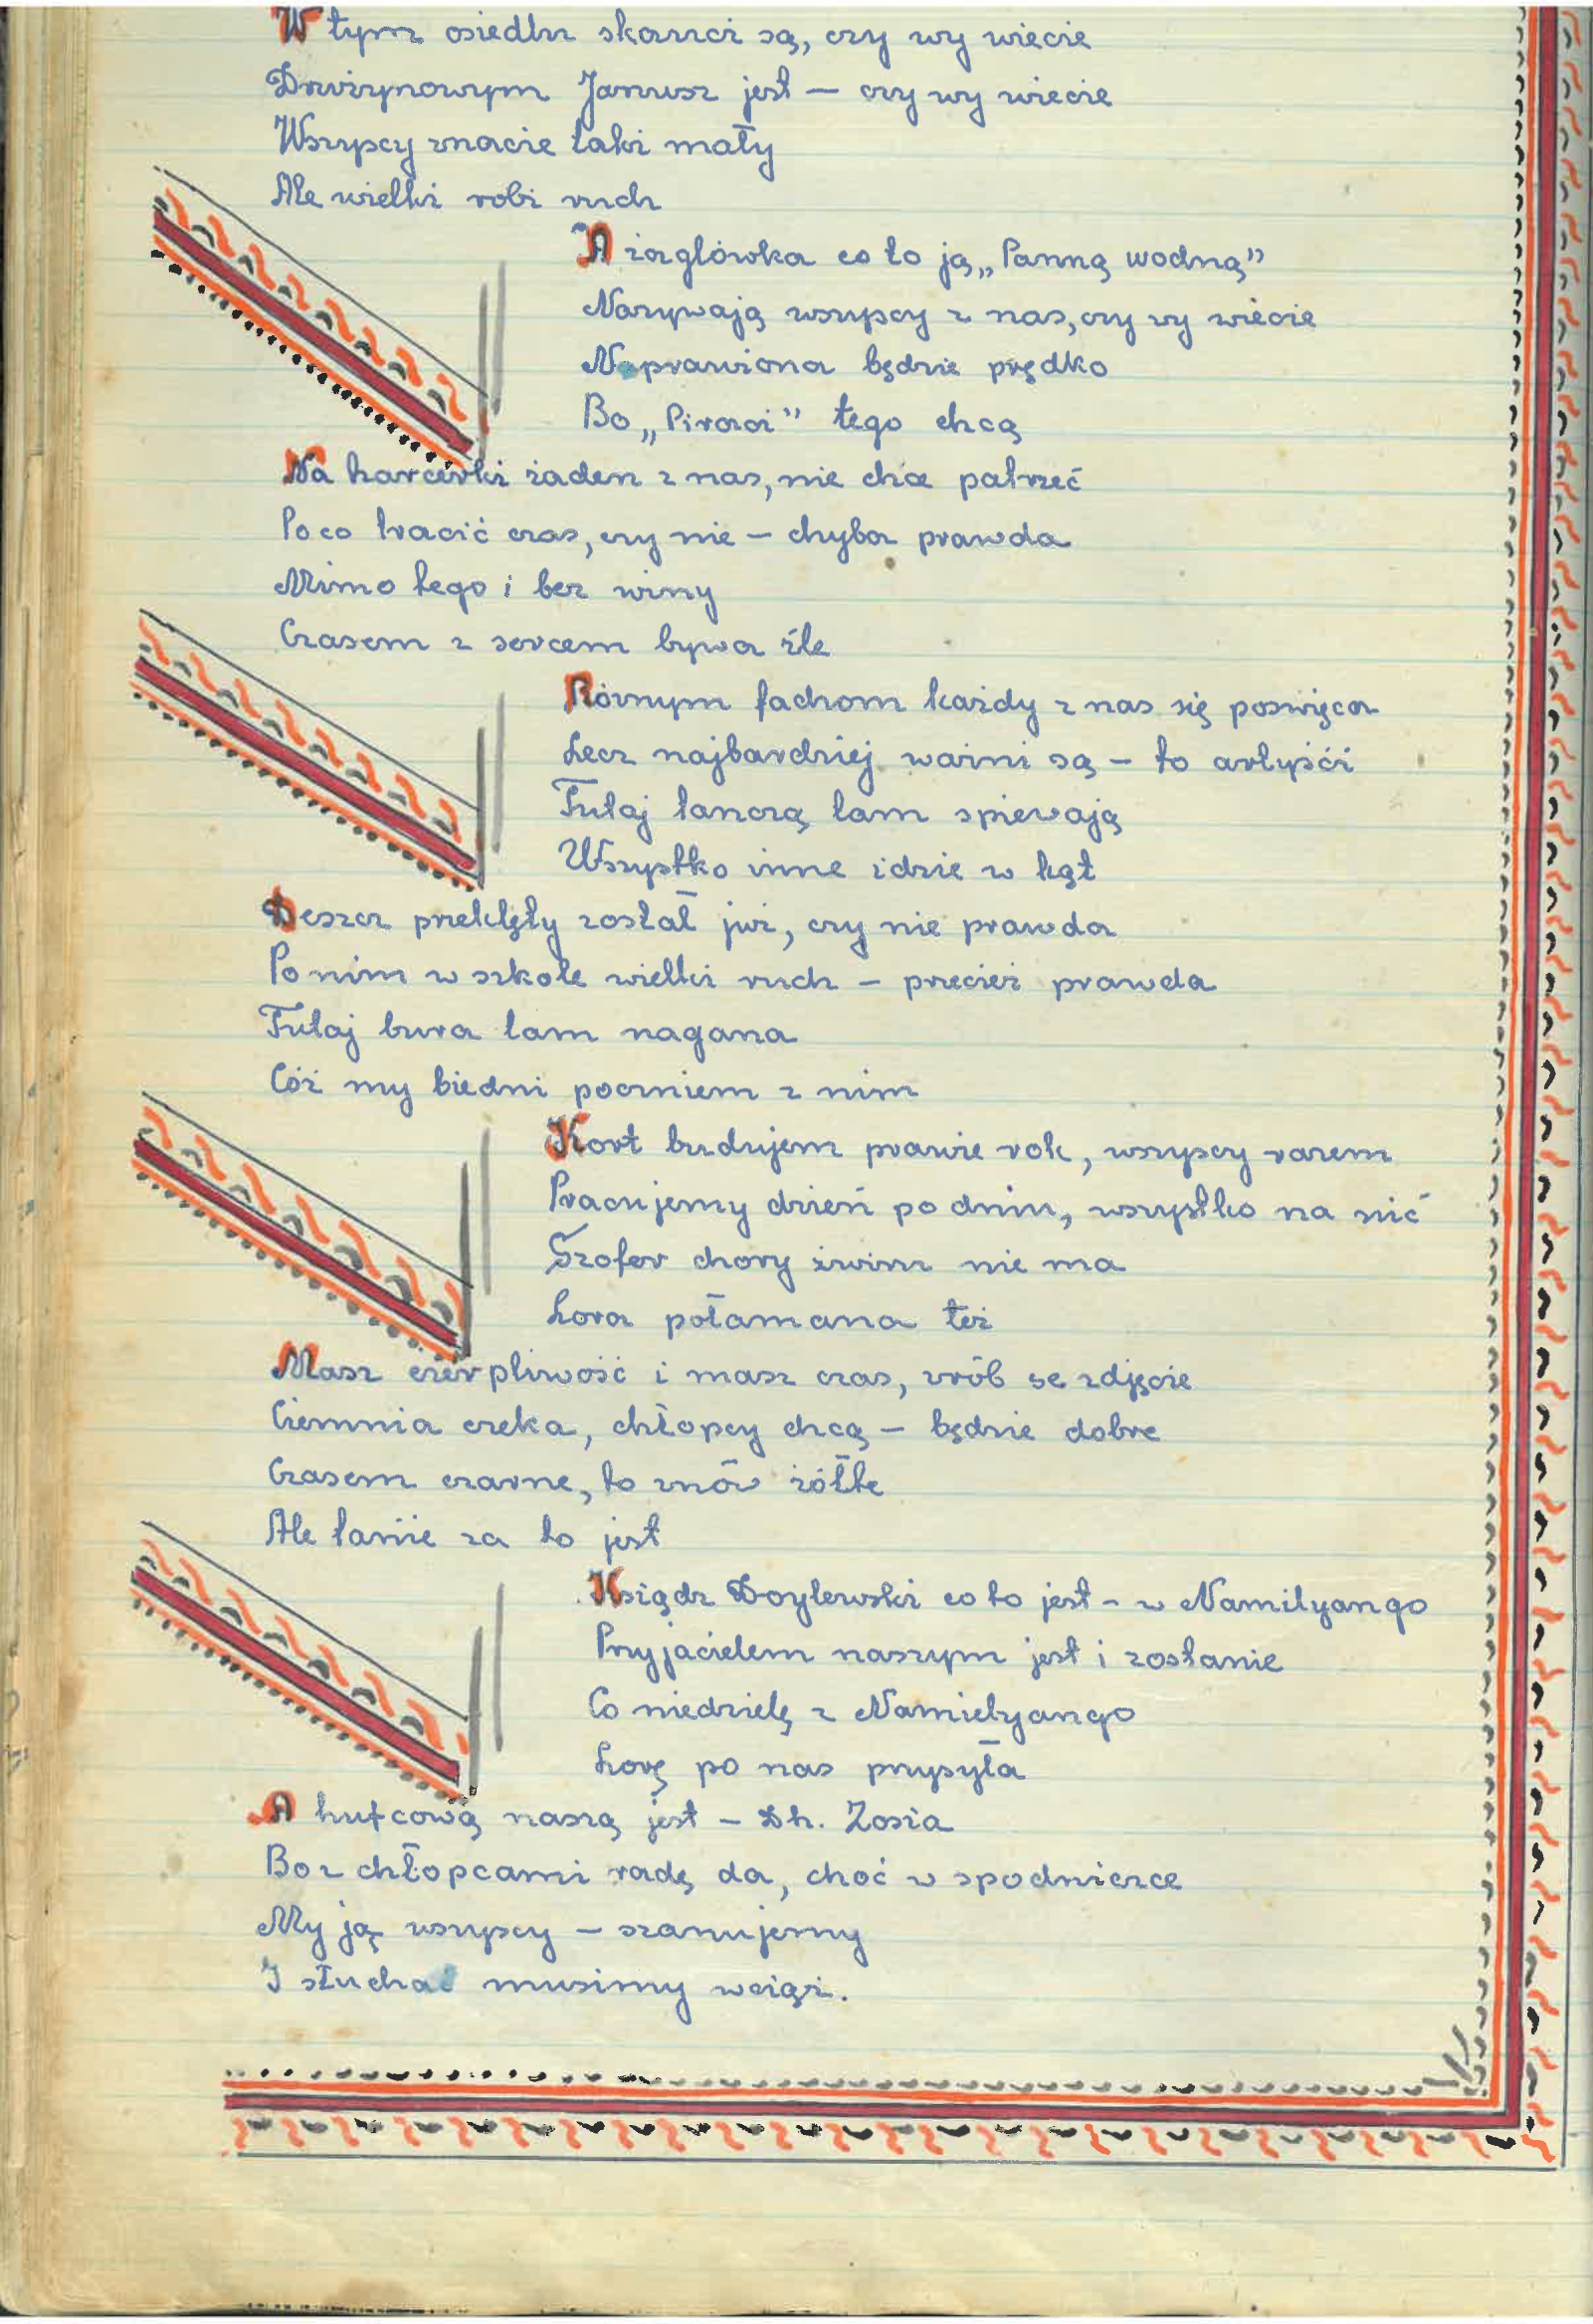 W tym osiedlu skauci są, czy wy wiecie
Drużynowym Janusz jest – czy wy wiecie
Wszyscy znacie taki mały
Ale wielki robi ruch
A żaglówka co to ją „Panną wodną”
Nazywają wszyscy z nas, czy wy wiecie
Naprawiona będzie prędko
Bo „Piraci” tego chcą
Na harcerki żaden z nas, nie chce patrzeć
Po co tracić czas, czy nie – chyba prawda
Mimo tego i bez winy
Czasem z sercem bywa źle
Różnym fachom każdy z nas się poswięca
Lecz najbardziej ważni są – to artyśći
Tutaj tańczą tam spiewają
Wszystko inne idzie w kąt
Deszcz przeklęty został już, czy nie prawda
Po nim w szkole wielki ruch – przecież prawda
Tutaj bura tam nagana
Cóż my biedni poczniem z nim
Kort budujem prawie rok, wszyscy razem
Pracujemy dzień po dniu, wszystko na nić
Szofer chory żwiru nie ma
Lora połamana też
Masz cierpliwość i masz czas, zrób se zdjęcie
Ciemnia czeka, chłopcy chcą – będzie dobre
Czasem czarne, to znów żółte
Ale tanie za to jest
Ksiądz Doylewski co to jest – w Namilyango
Przyjacielem naszym jest i zostanie
Co niedzielę z Namielyango
Lorę po nas przysyła
A hufcową naszą jest – Dh. Zosia
Bo z chłopcami radę da, choć w spodniczce
My ją wszyscy – szanujemy
I słuchać musimy wciąż.